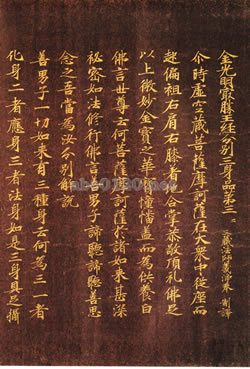 金光明冣勝王經分別三身品第三 三藏法師義淨奉 制譯
尒時虛空藏菩薩摩訶薩在大衆中從座而
起偏袒右肩右膝著地合掌恭敬頂礼佛足
以上微妙金寶之華寶幢幡蓋而為供養白
佛言世尊云何菩薩摩訶薩於諸如來甚深
秘密如法修行佛言善男子諦聽諦聽善思
念之吾當為汝分別解說
善男子一切如來有三種身云何為三一者
化身二者應身三者法身如是三身具足攝